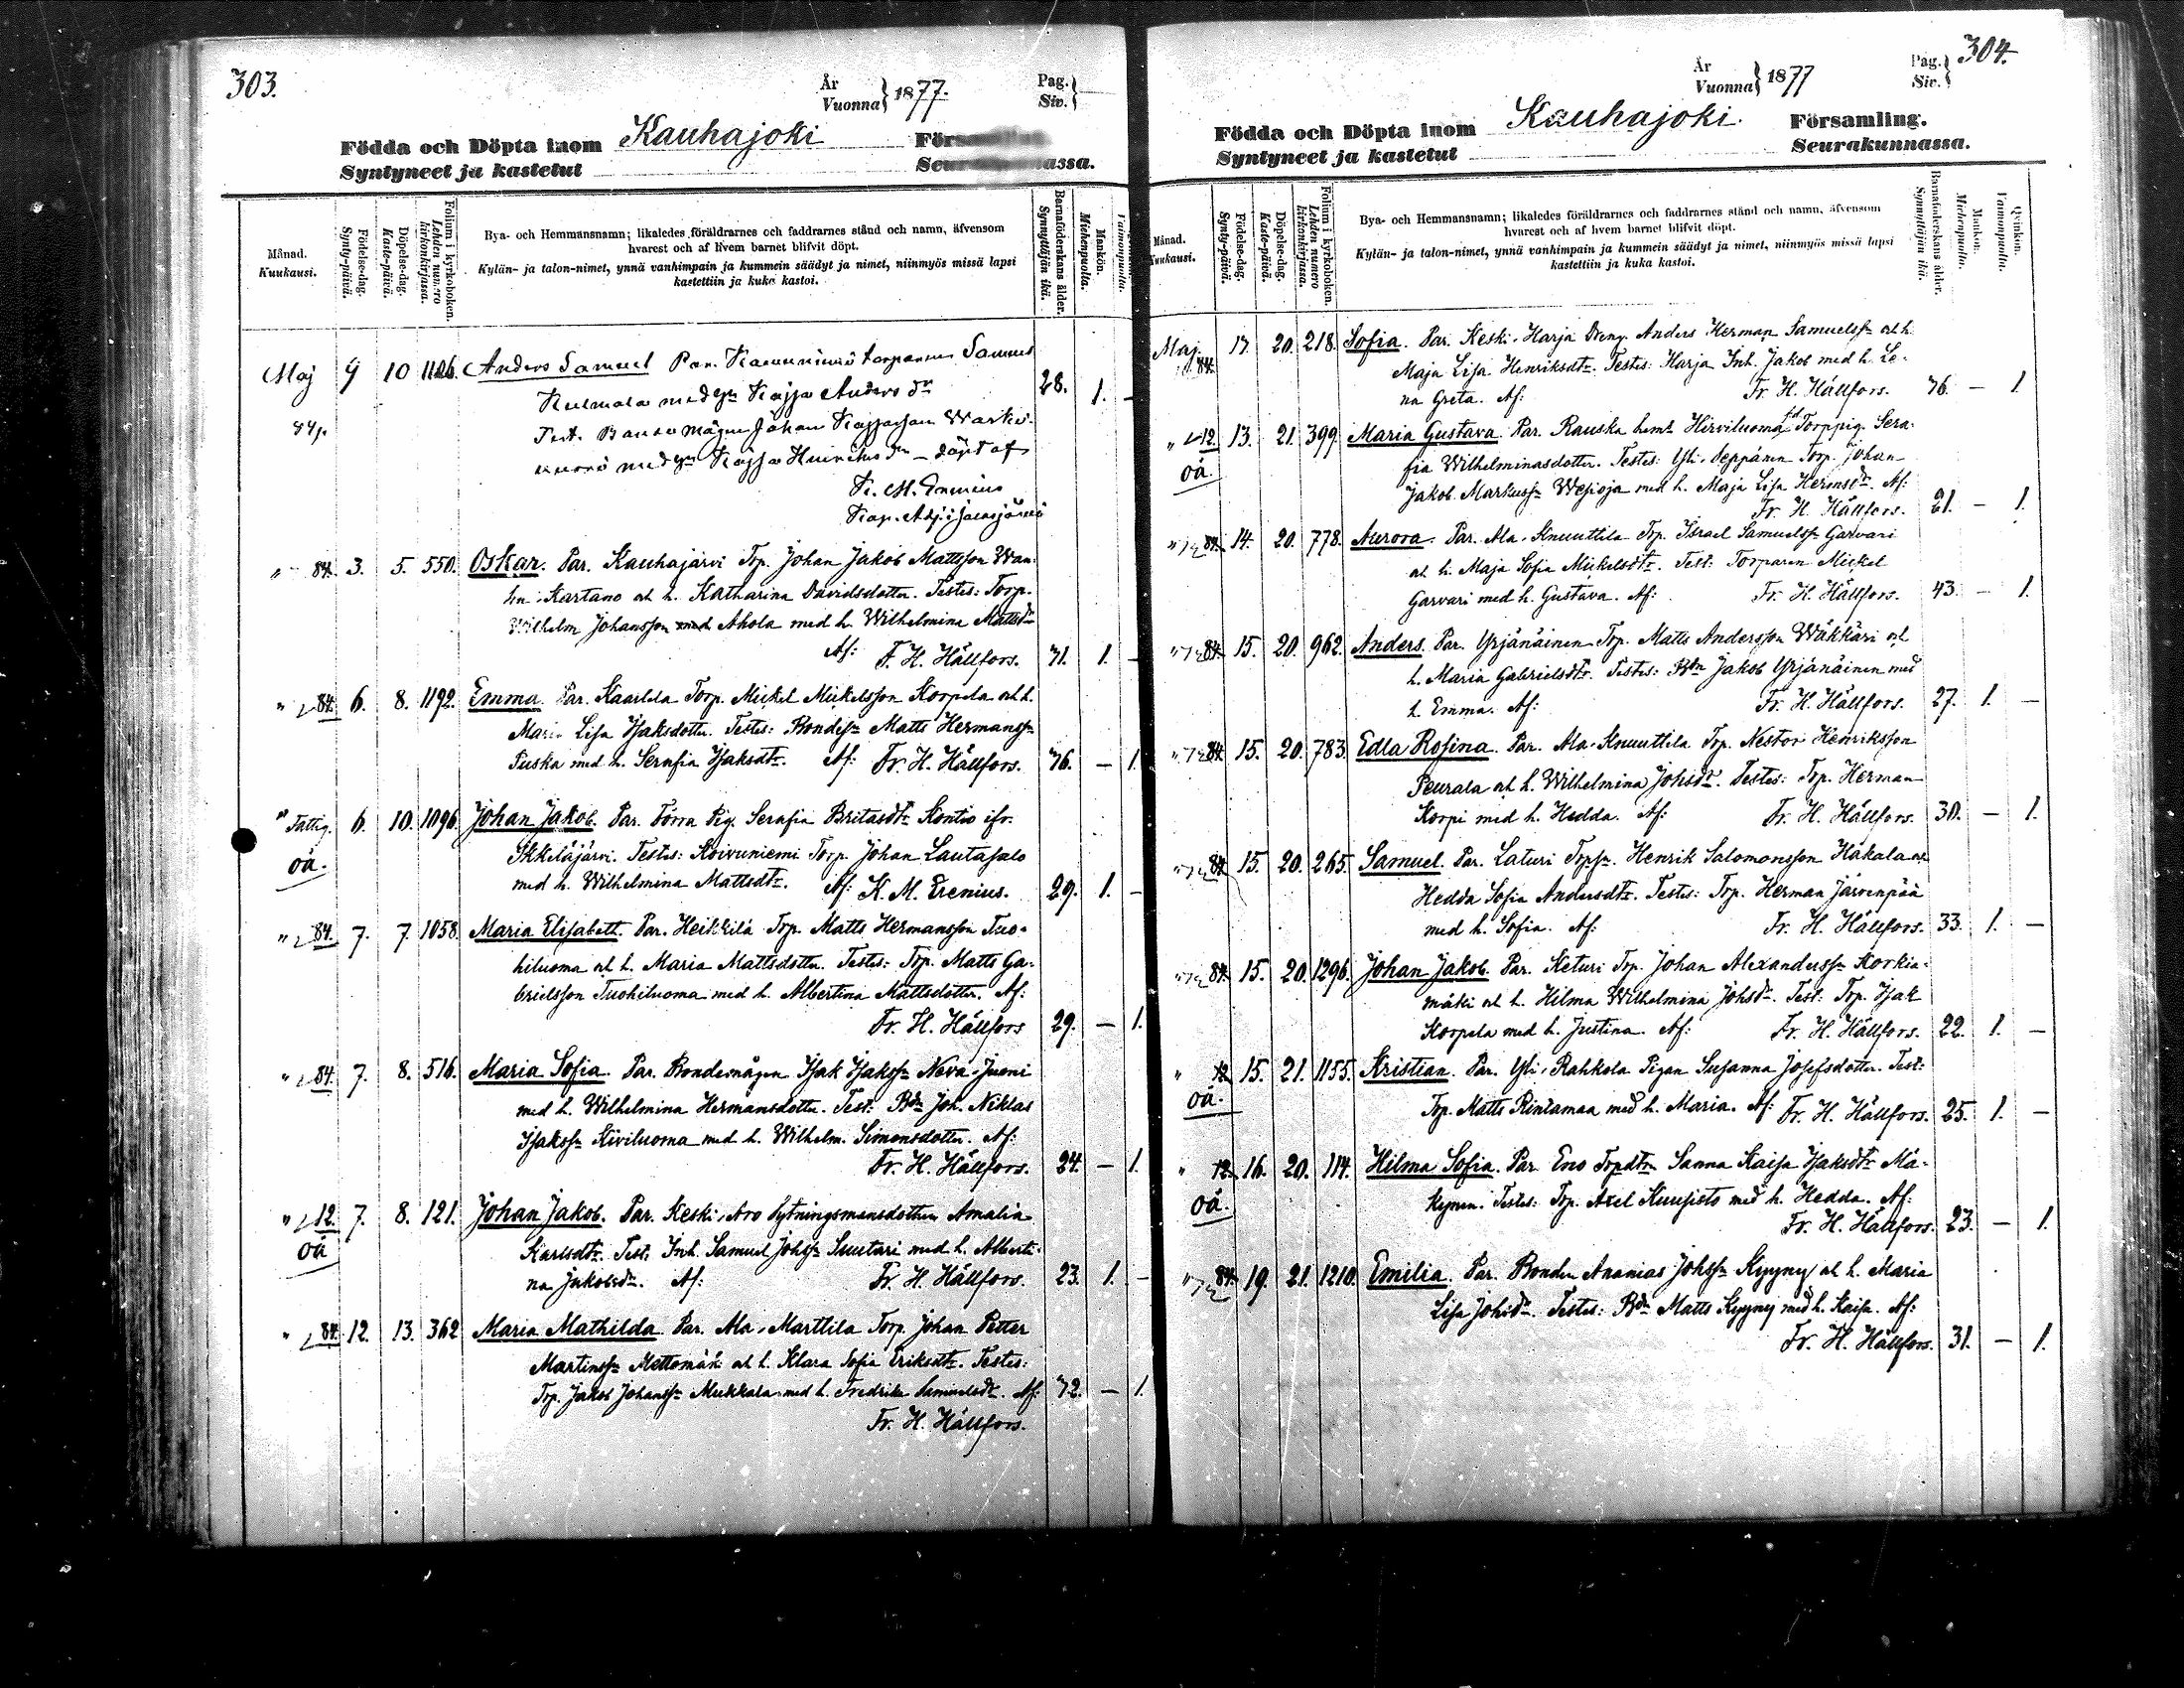 303.
År
Vuonna } 1877.
Pag.
Siv. }
Födda och Döpta inom Kauhajoki
Syntyneet ja kastetut
Månad.
Kuukausi.
Födelse-dag.
Synty-päivä.
Döpelse-dag.
Kaste-päivä.
Folium i kyrkoboken.
Lehden numero
kirkonkirjassa.
Bya- och Hemmansnamn; likaledes föräldrarnes och faddrarnes stånd och namn, äfvensom
hvarest och af hvem barnet blifvit döpt.
Kylän- ja talon-nimet, ynnä vanhimpain ja kummein säädyt ja nimet, niinmyös missä lapsi
kastettiin ja kuka kastoi.
Barnaföderskans ålder.
Synnyttäjän ikä.
Mankön.
Miehenpuolia.
Maj 9 10 1126. Anders Samuel Par. torparen
med hu Kajsa Anders dr 28. 1.
Test. Johan
med hu Kajsa döpt af
K. M. Erenius
Kap. Adj. i Jalasjärvi
" 84. 3. 5. 550. Oskar. Par. Kauhajärvi Trp. Johan Jakob Mattsson Wan-
hn Kartano och h. Katharina Davidsdotter. Testes: Torp.
Wilhelm Johansson Ahola med h. Wilhelmina Mattsdr
Af: F. H. Hällfors. 71. 1. –
" 84. 6. 8. 1192. Emma. Par. Kaarlela Torp. Mickel Mickelsson Korpela och h.
Maria Lisa Isaksdotter. Testes: Bondess. Matts Hermanss.
Puska med h. Serafia Isaksdtr. Af: Fr. H. Hällfors. 76. – 1.
" Fattig. 6. 10. 1096. Johan Jakob. Par. Törra Pig. Serafia Britasdtr Kontio ifr.
oä. Ikkeläjärvi. Testes: Koivuniemi Torp. Johan Lautasalo
med h. Wilhelmina Mattsdtr. Af: K. M. Erenius. 29. 1. –
" 84. 7. 7. 1058. Maria Elisabett. Par. Heikkilä Trp. Matts Hermansson Tuo-
hiluoma och h. Maria Mattsdotter. Testes: Trp. Matts Ga-
brielsson Tuohiluoma med h. Albertina Mattsdotter. Af:
Fr. H. Hällfors 29. – 1.
" 84. 7. 8. 516. Maria Sofia. Par. Bondemågen Isak Isakss. Neva-Juoni
med h. Wilhelmina Hermansdotter. Test: Bdn Joh. Niklas
Isakss. Kiviluoma med h. Wilhelm. Simonsdotter. Af:
Fr. H. Hällfors. 24. – 1.
" 12. 7. 8. 121. Johan Jakob. Par. Keski-Aro Sytningsmansdotter Amalia
oä Karlsdtr. Test. Inh. Samuel Johss. Suutari med h. Alberti-
na Jakobsdr. Af: Fr. H. Hällfors. 23. 1. –
" 84. 12. 13. 362 Maria Mathilda. Par. Ala-Marttila Torp. Johan Petter
Martinss. Mettomäki och h. Klara Sofia Eriksdtr. Testes:
Trp. Jakob Johanss. Mukkala med h. Fredrika Samuelsdtr. Af: 42. – 1.
Fr. H. Hällfors.
304.
År
Vuonna } 1877
Pag.
Siv. }
Födda och Döpta inom Kauhajoki. Församling.
Syntyneet ja kastetut Seurakunnassa.
Månad.
Kuukausi.
Födelse-dag.
Synty-päivä.
Döpelse-dag.
Kaste-päivä.
Folium i kyrkoboken.
Lehden numero
kirkonkirjassa.
Bya- och Hemmansnamn; likaledes föräldrarnes och faddrarnes stånd och namn, äfvensom
hvarest och af hvem barnet blifvit döpt.
Kylän- ja talon-nimet, ynnä vanhimpain ja kummein säädyt ja nimet, niinmyös missä lapsi
kastettiin ja kuka kastoi.
Barnaföderskans ålder.
Synnyttäjän ikä.
Mankön.
Miehenpuolia.
Qvinkön.
Vaimonpuolia.
Maj 84. 17. 20. 218. Sofia. Par. Keski-Harja Dreng. Anders Herman Samuelss. och h.
Maja Lisa Henriksdtr. Testes: Harja Inh. Jakob med h. Le-
na Greta. Af: Fr. H. Hällfors. 76. – 1.
" 12. 13. 21. 399. Maria Gustava. Par. Rauska hemt Hirviluoma Torppig. Sera-
oä. fia Wilhelminasdotter. Testes: Yli-Seppänen Torp. Johan
Jakob Markuss. Wesioja med h. Maja Lisa Hermsdr. Af:
Fr. H. Hällfors. 21. – 1.
" 84. 14. 20. 778. Aurora. Par. Ala-Knuuttila Trp. Israel Samuelss. Garvari
och h. Maja Sofia Mickelsdtr. Test: Torparen Mickel
Garvari med h. Gustava. Af: Fr. H. Hällfors. 43. – 1.
" 84. 15. 20. 962. Anders. Par. Yrjänäinen Trp. Matts Andersson Wäkkäri och
h. Maria Gabrielsdtr. Testes: Bdn Jakob Yrjänäinen med
h. Emma. Af: Fr. H. Hällfors. 27. 1. –
" 84. 15. 20. 783. Edla Rosina. Par. Ala-Knuuttila Trp. Nestor Henriksson
Peurala och h. Wilhelmina Johsdr. Testes: Trp. Herman
Korpi med h. Hedda. Af: Fr. H. Hällfors. 30. – 1.
84. 15. 20. 265. Samuel. Par. Laturi Torps. Henrik Salomonsson Häkala och
Hedda Sofia Andersdtr. Testes: Trp. Herman Järvenpää
med h. Sofia. Af: Fr. H. Hällfors. 33. 1. –
" 84. 15. 20. 1296. Johan Jakob. Par. Keturi Trp. Johan Alexanderss. Korkia-
mäki och h. Hilma Wilhelmina Johsdr. Test: Trp. Isak
Korpela med h. Justina. Af: Fr. H. Hällfors. 22. 1. –
" 12. 15. 21. 1155. Kristian. Par. Yli-Rahkola Pigan Susanna Josefsdotter. Test:
oä. Trp. Matts Rintamaa med h. Maria. Af: Fr. H. Hällfors. 25. 1. –
" 12. 16. 20. 114. Hilma Sofia. Par. Eno Torpdtrn Sanna Kaisa Isaksdtr Mä-
oä. kynen. Testes: Trp. Axel Kuusisto med h. Hedda. Af:
Fr. H. Hällfors. 23. – 1.
" 84. 19. 21. 1210. Emilia. Par. Bonden Ananias Johss. Kyyny och h. Maria
Lisa Johsdr. Testes: Bdn Matts Kyyny med h. Kaisa. Af:
Fr. H. Hällfors. 31. – 1.